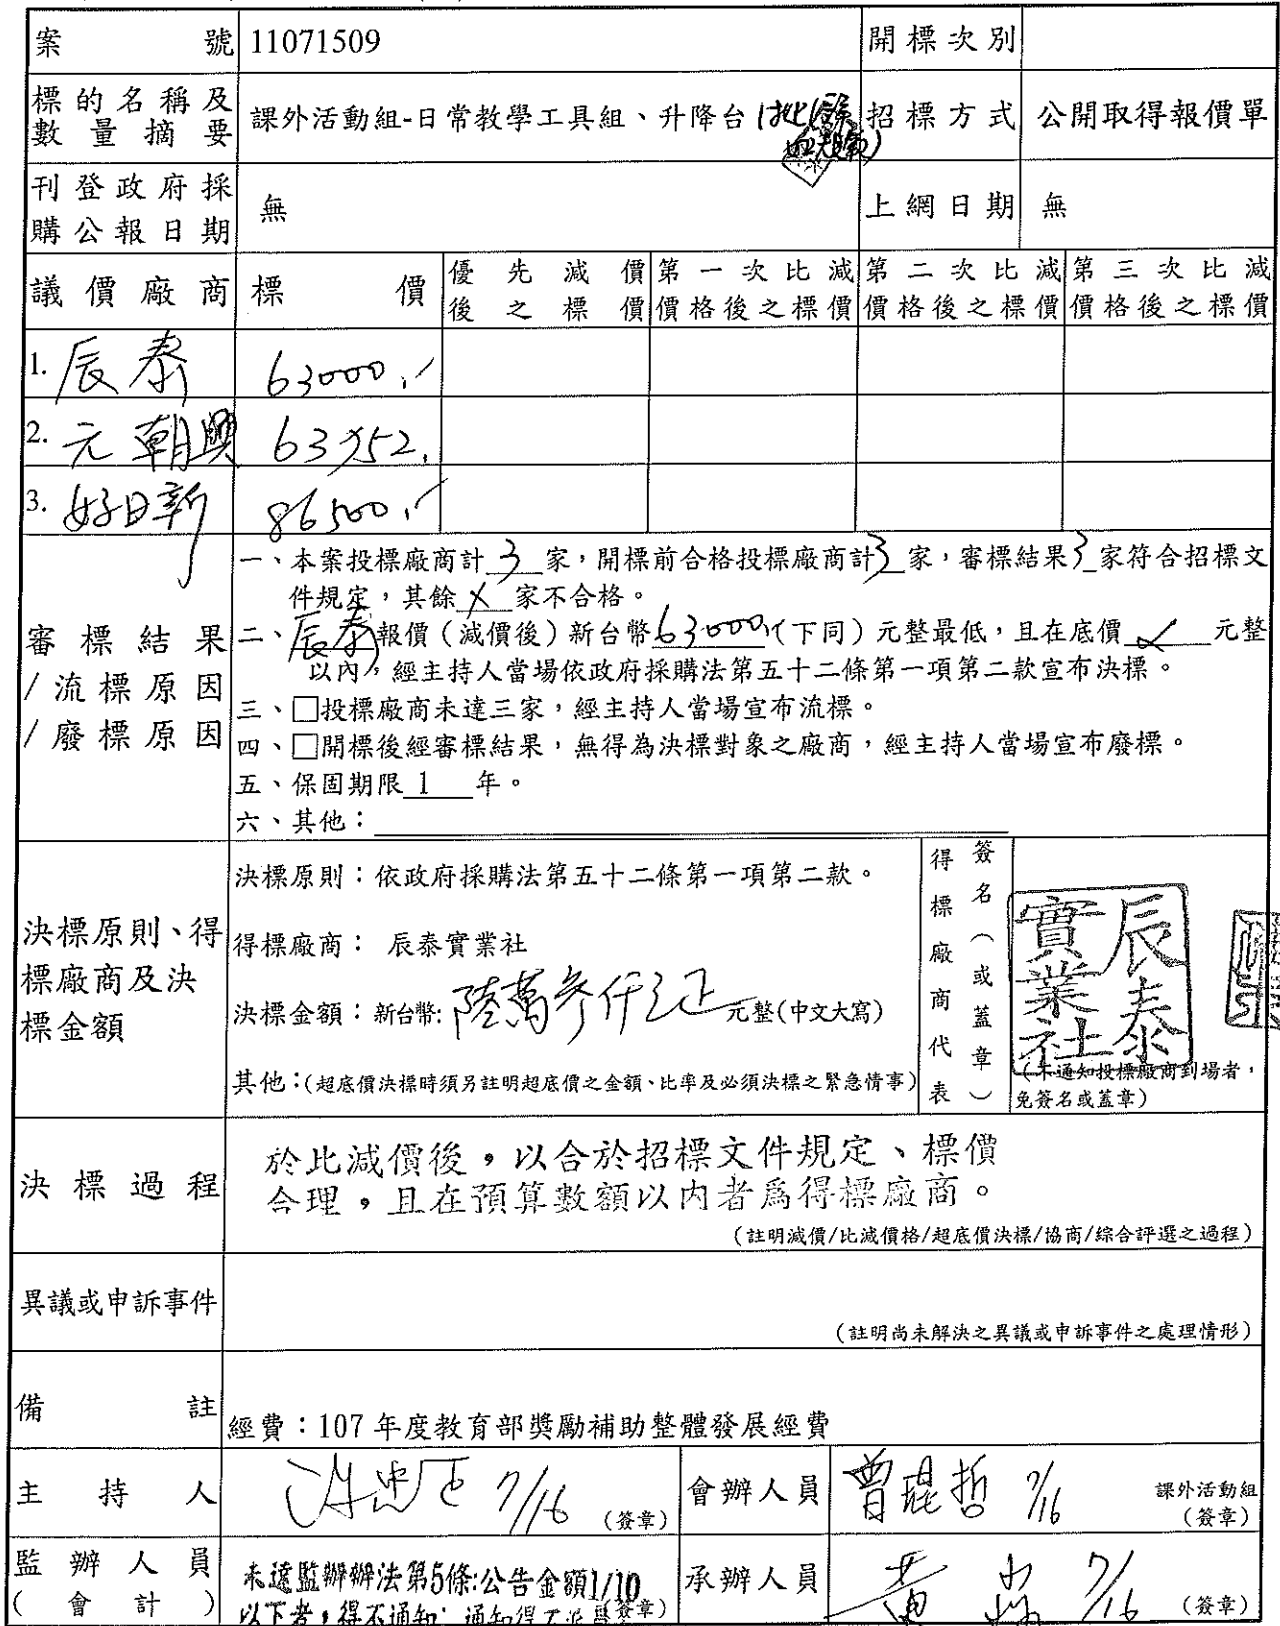 案號 11071509 開標次別
標的名稱及數量摘要 課外活動組-日常教學工具組、升降台 招標方式 公開取得報價單
刊登政府採購公報日期 無 上網日期 無
議價廠商 標價 優先減價後之標價 第一次比減價格後之標價 第二次比減價格後之標價 第三次比減價格後之標價
1. 辰泰 63000.
2. 元朝興 63952.
3. 好日新 86500.
審標結果/流標原因/廢標原因
一、本案投標廠商計 3 家，開標前合格投標廠商計 3 家，審標結果 3 家符合招標文
件規定，其餘 X 家不合格。
二、辰泰報價（減價後）新台幣 63000 （下同）元整最低，且在底價 元整
以內，經主持人當場依政府採購法第五十二條第一項第二款宣布決標。
三、□投標廠商未達三家，經主持人當場宣布流標。
四、□開標後經審標結果，無得為決標對象之廠商，經主持人當場宣布廢標。
五、保固期限 1 年。
六、其他：
決標原則、得標廠商及決標金額
決標原則：依政府採購法第五十二條第一項第二款。
得標廠商： 辰泰實業社
決標金額：新台幣: 陸萬參仟元正 元整(中文大寫)
其他：(超底價決標時須另註明超底價之金額、比率及必須決標之緊急情事)
得標廠商代表
簽名（或蓋章）
辰泰實業社
(未通知投標廠商到場者，
免簽名或蓋章)
決標過程
於比減價後，以合於招標文件規定、標價
合理，且在預算數額以內者為得標廠商。
(註明減價/比減價格/超底價決標/協商/綜合評選之過程)
異議或申訴事件
(註明尚未解決之異議或申訴事件之處理情形)
備註 經費：107 年度教育部獎勵補助整體發展經費
主持人 7/16 (簽章) 會辦人員 曾琨哲 7/16 課外活動組
(簽章)
監辦人員(會計)
未達監辦辦法第5條:公告金額1/10
以下者，得不通知; (簽章)
承辦人員 黃 7/16 (簽章)